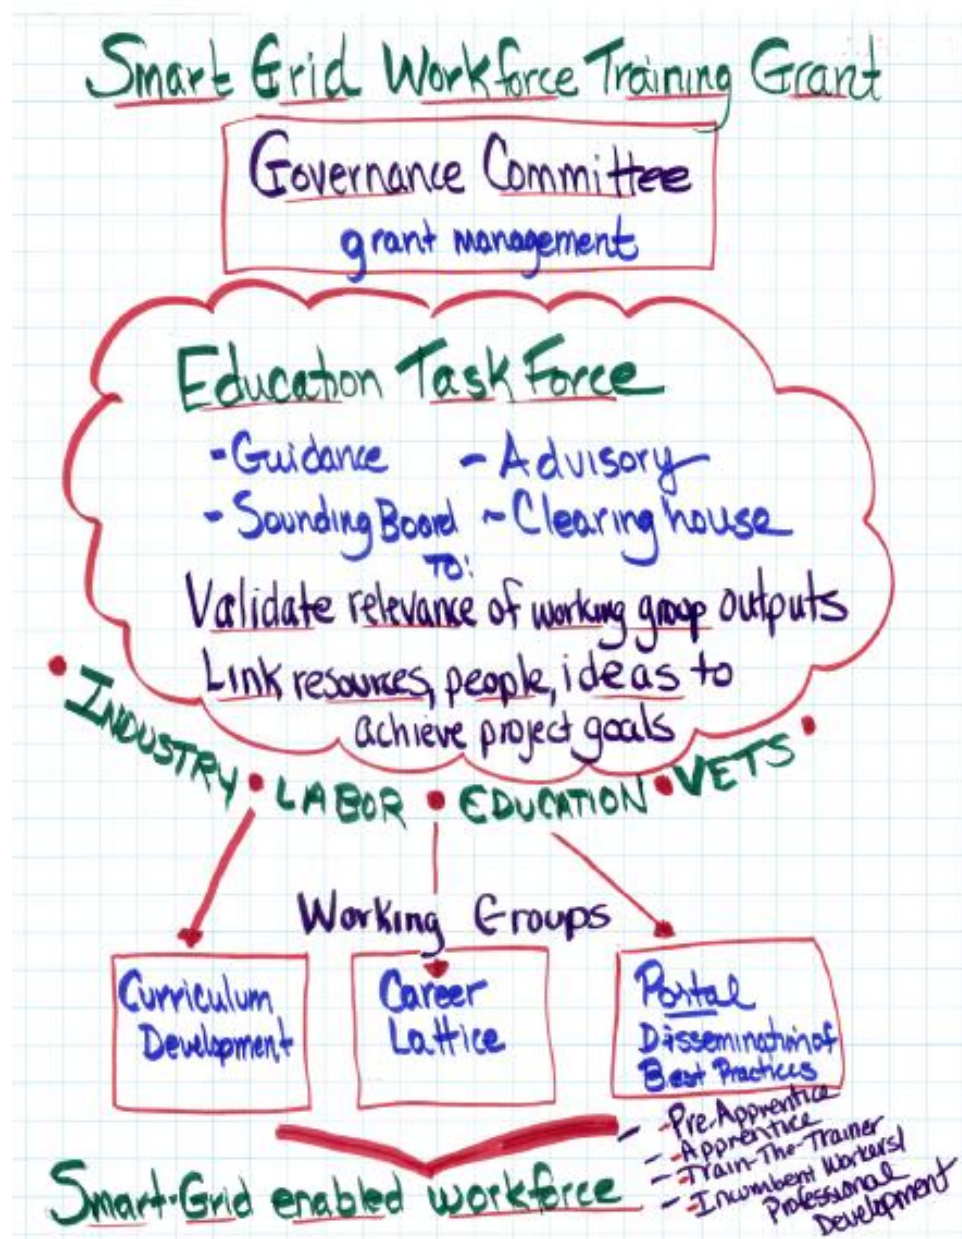 Smart Grid Workforce Training Grant
Governance Committee
grant management
Education Task Force
- Guidance - Advisory
- Sounding Board - Clearing house
TO:
Validate relevance of working group outputs
Link resources, people, ideas to
achieve project goals
• INDUSTRY • LABOR • EDUCATION • VETS •
Working Groups
Curriculum
Development
Career
Lattice
Portal
Dissemination of
Best Practices
- Pre-Apprentice
- Apprentice
- Train-The-Trainer
- Incumbent Workers/
Professional
Development
Smart-Grid enabled workforce